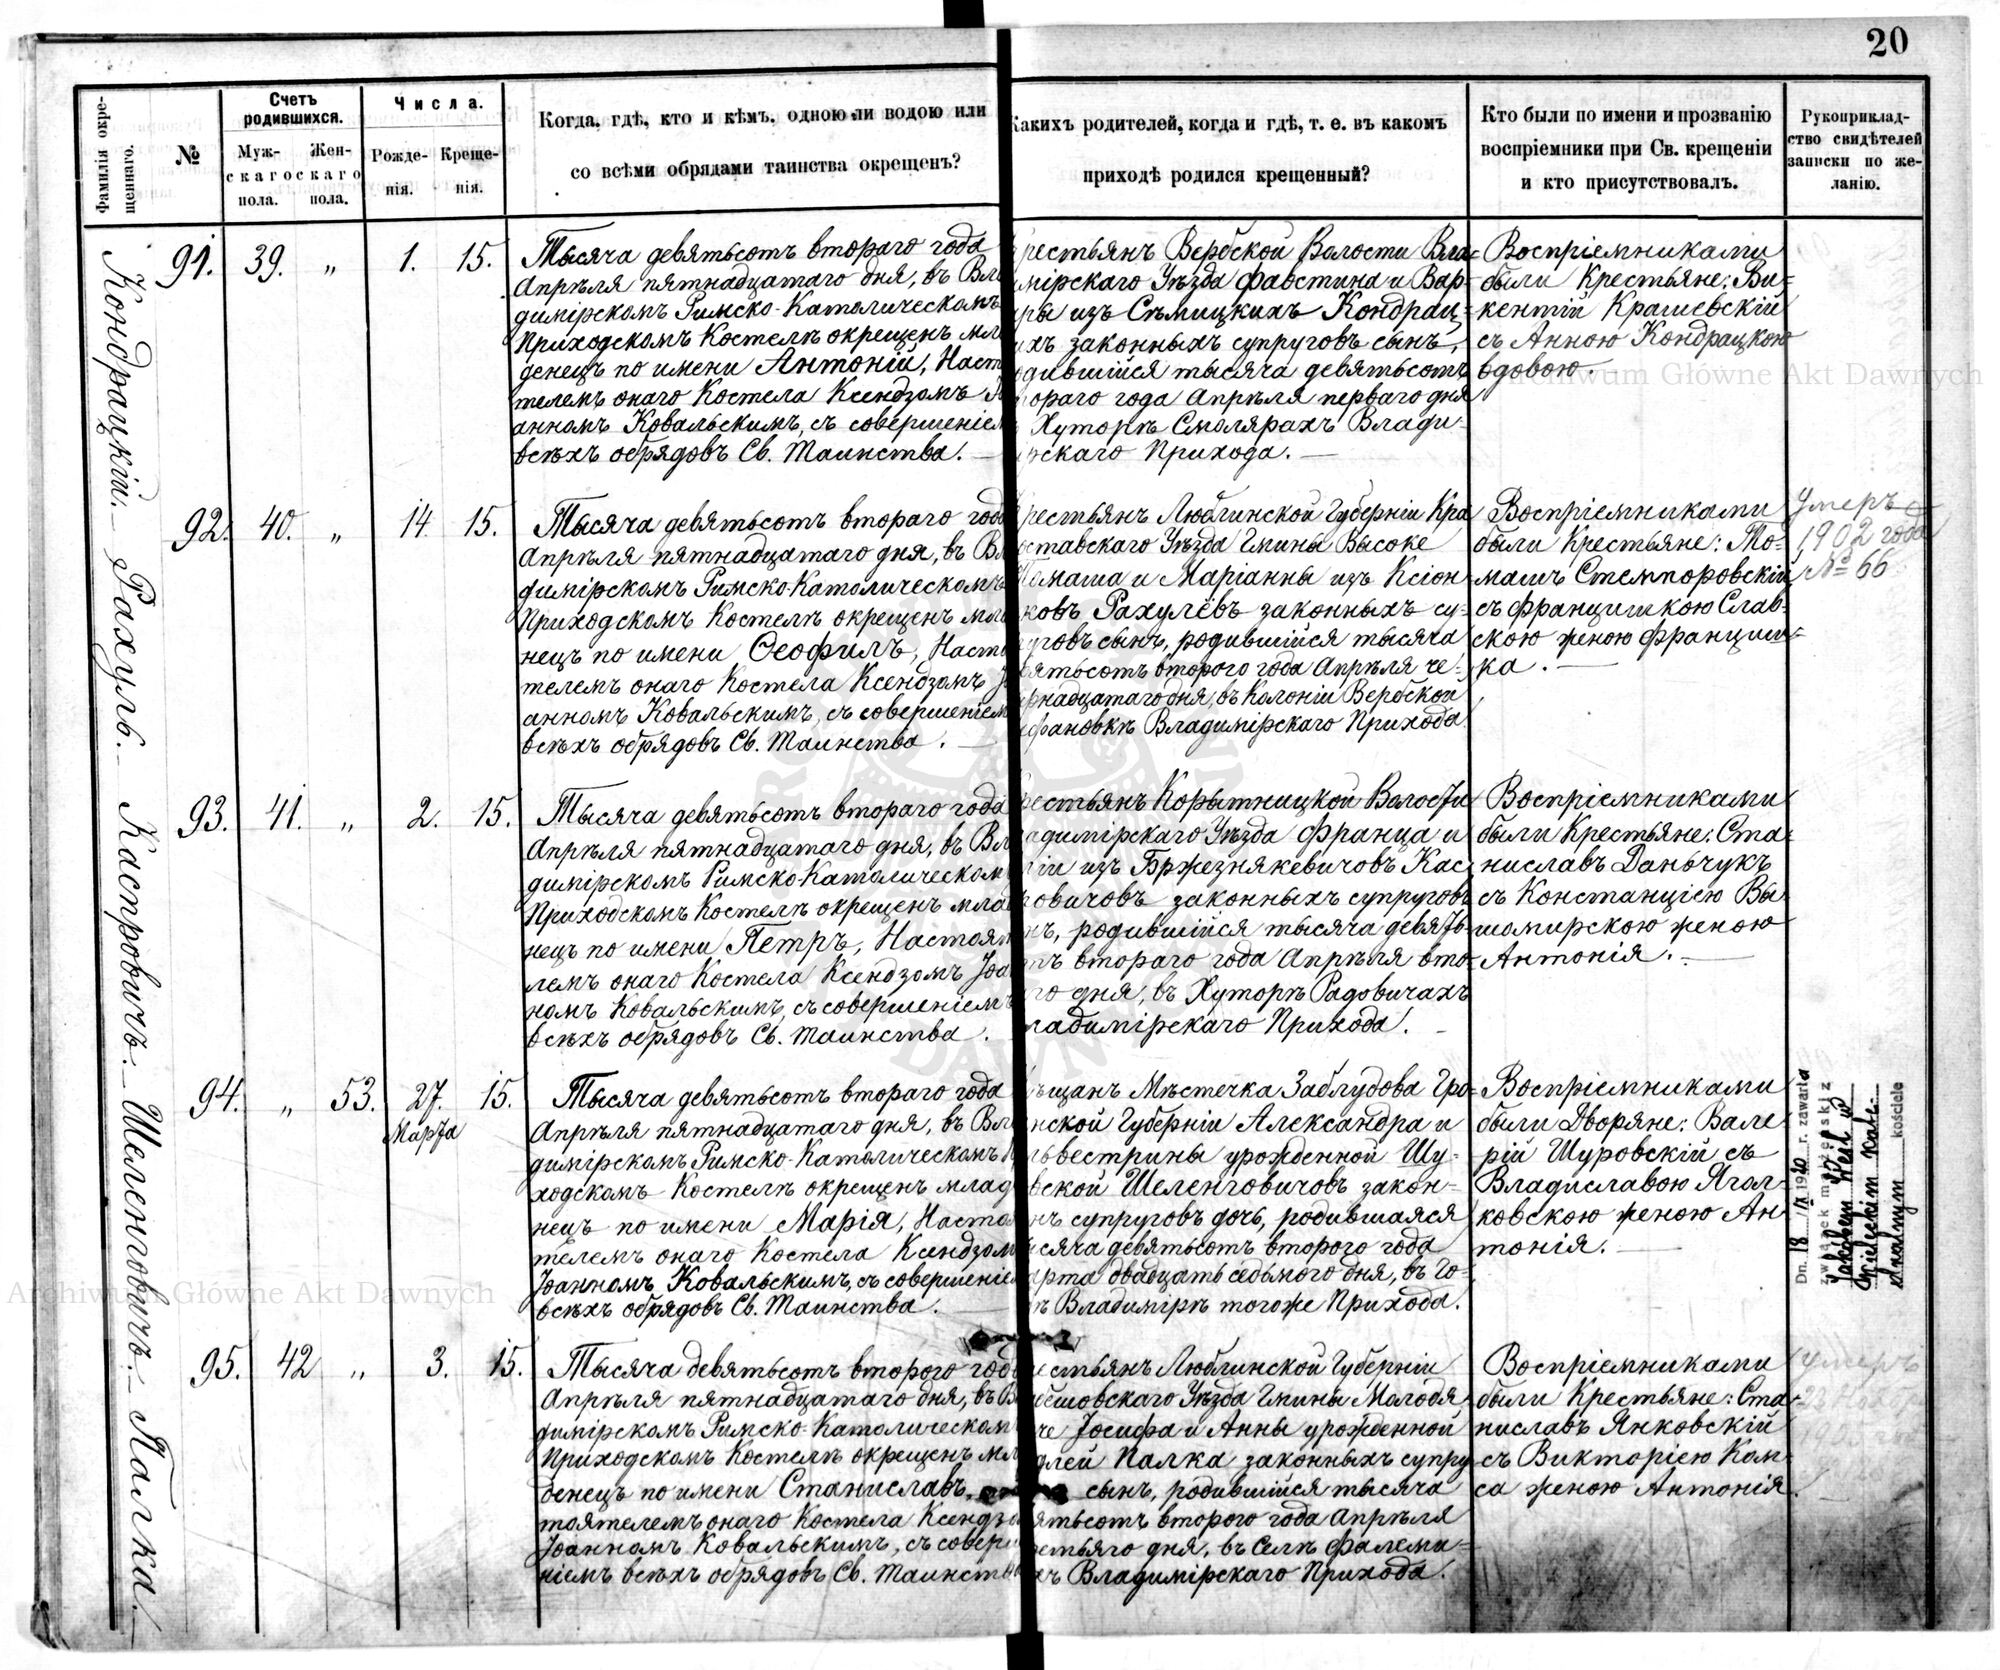 20
Фамилія окре-
щеннаго.
№
Счетъ
родившихся.
Муж-
скаго
пола.
Жен-
скаго
пола.
Числа.
Рожде-
нія.
Креще-
нія.
Когда, гдѣ, кто и кѣмъ, одною ли водою или
со всѣми обрядами таинства окрещенъ?
Какихъ родителей, когда и гдѣ, т. е. въ какомъ
приходѣ родился крещенный?
Кто были по имени и прозванію
воспріемники при Св. крещеніи
и кто присутствовалъ.
Рукоприклад-
ство свидѣтелей
записки по же-
ланію.
Кондрацкій.
91. 39. „ 1. 15.
Тысяча девятьсотъ втораго года
Апрѣля пятнадцатаго дня, въ Вла
димірскомъ Римско-Католическомъ
Приходскомъ Костелѣ окрещенъ мла
денецъ по имени Антоній, Наст
телемъ онаго Костела Ксендзомъ
анномъ Ковальскимъ, съ совершеніем
всѣхъ обрядовъ Св. Таинства. —
рестьянъ Вербской Волости Вла=
мірскаго Уѣзда Фавстина и Вар=
ры изъ Сѣмицкихъ Кондрац=
ихъ законныхъ супруговъ сынъ,
одившійся тысяча девятьсотъ
тораго года Апрѣля перваго дня
Хуторѣ Смолярахъ Влади-
ірскаго Прихода. —
Воспріемниками
были Крестьяне: Ви=
кентій Крашевскій
съ Анною Кондрацкою
вдовою. —
Рахуль.
92. 40. „ 14 15.
Тысяча девятьсотъ втораго года
Апрѣля пятнадцатаго дня, въ Вл
димірскомъ Римско-Католическомъ
Приходскомъ Костелѣ окрещенъ мла
нецъ по имени Ѳеофилъ, Насто
телемъ онаго Костела Ксендзомъ
анномъ Ковальскимъ, съ совершеніем
всѣхъ обрядовъ Св. Таинства. —
рестьянъ Люблинской Губерніи Кра
оставскаго Уѣзда Гмины Высоке
Томаша и Маріанны изъ Ксіон-
жковъ Рахулёвъ законныхъ су-
руговъ сынъ, родившійся тысяча
вятьсотъ второго года Апрѣля че-
рнадцатаго дня, въ Колоніи Вербской
Владимірскаго Прихода
Воспріемниками
были Крестьяне: То-
машъ Стемпоровскій
съ Францишкою Слав-
скою женою Францим-
ка. —
Умеръ
1902 года
№ 66
Каспровичъ.
93. 41. „ 2. 15.
Тысяча девятьсотъ втораго года
Апрѣля пятнадцатаго дня, въ Вл
димірскомъ Римско-Католическом
Приходскомъ Костелѣ окрещенъ млад
нецъ по имени Петръ, Настоят
лемъ онаго Костела Ксендзомъ Іоа
номъ Ковальскимъ, съ совершеніемъ
всѣхъ обрядовъ Св. Таинства.
рестьянъ Корытницкой Волости
адимірскаго Уѣзда Франца и
іи изъ Бржезнякевичовъ Кас
ровичовъ законныхъ супруговъ
нъ, родившійся тысяча девять
отъ втораго года Апрѣля вто-
го дня, въ Хуторѣ Радовичахъ
ладимірскаго Прихода.
Воспріемниками
были Крестьяне: Ста=
ниславъ Даньчукъ
съ Констанціею Вы
шомирскою женою
Антонія. —
Шеленговичъ.
94. „ 53. 27. 15.
Марта
Тысяча девятьсотъ втораго года
Апрѣля пятнадцатаго дня, въ Вла
димірскомъ Римско-Католическомъ П
ходскомъ Костелѣ окрещенъ млад
нецъ по имени Марія, Насто
телемъ онаго Костела Ксендзом
Іоанномъ Ковальскимъ, съ совершеніем
всѣхъ обрядовъ Св. Таинства. —
ѣщанъ Мѣстечка Заблудова Гро-
нской Губерніи Александра и
львестрины урожденной Шу-
вской Шеленговичовъ закон-
нъ супруговъ дочь, родившаяся
сяча девятьсотъ второго года
арта двадцать седьмого дня, въ Го-
ѣ Владимірѣ тогоже Прихода.
Воспріемниками
были Дворяне: Вале
рій Шуровскій съ
Владиславою Ягол-
ковскою женою Ан
тонія. —
Dn. 18 IX 1920 r. zawarła
związek małżeński z
kościele
Палка.
95. 42 „ 3. 15.
Тысяча девятьсотъ второго год
Апрѣля пятнадцатаго дня, въ В
димірскомъ Римско-Католическом
Приходскомъ Костелѣ окрещенъ мл
денецъ по имени Станиславъ,
тоятелемъ онаго Костела Ксендз
Іоанномъ Ковальскимъ, съ совер
ніемъ всѣхъ обрядовъ Св. Таинст
естьянъ Люблинской Губерніи
Уѣзда Гмины Молодя
че Іосифа и Анны урожденной
Палка законныхъ супру
сынъ, родившійся тысяча
ятьсотъ второго года Апрѣля
етьяго дня, въ Селѣ Фалеми-
хъ Владимірскаго Прихода.
Воспріемниками
были Крестьяне: Ста-
ниславъ Янковскій
съ Викторіею Ком-
са женою Антонія.
Умеръ
Archiwum Główne Akt Dawnych
Archiwum Główne Akt Dawnych